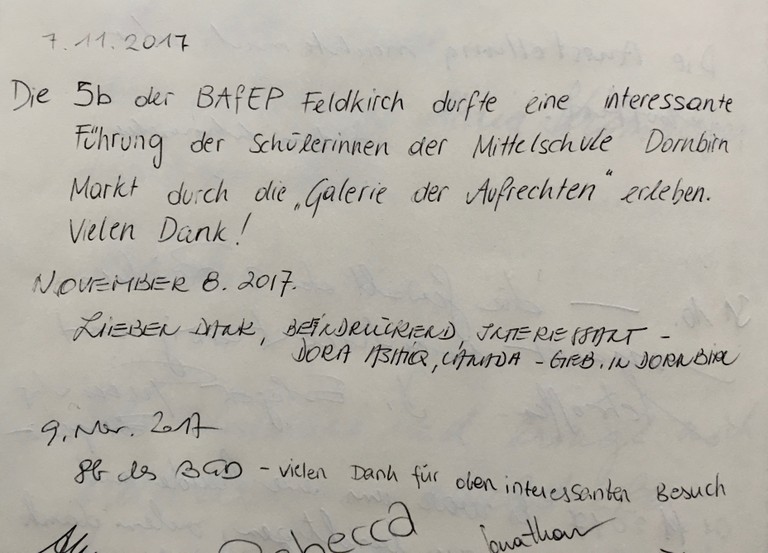 7.11.2017
Die 5b der BAfEP Feldkirch durfte eine interessante
Führung der Schülerinnen der Mittelschule Dornbirn
Markt durch die „Galerie der Aufrechten“ erleben.
Vielen Dank!
NOVEMBER 8. 2017.
LIEBEN DANK, BEEINDRUCKEND, INTERESSANT –
DORA ASHIQ, CANADA – GEB. IN DORNBIRN
9. Nov. 2017
8b des BGD – vielen Dank für den interessanten Besuch
Rebecca Jonathan